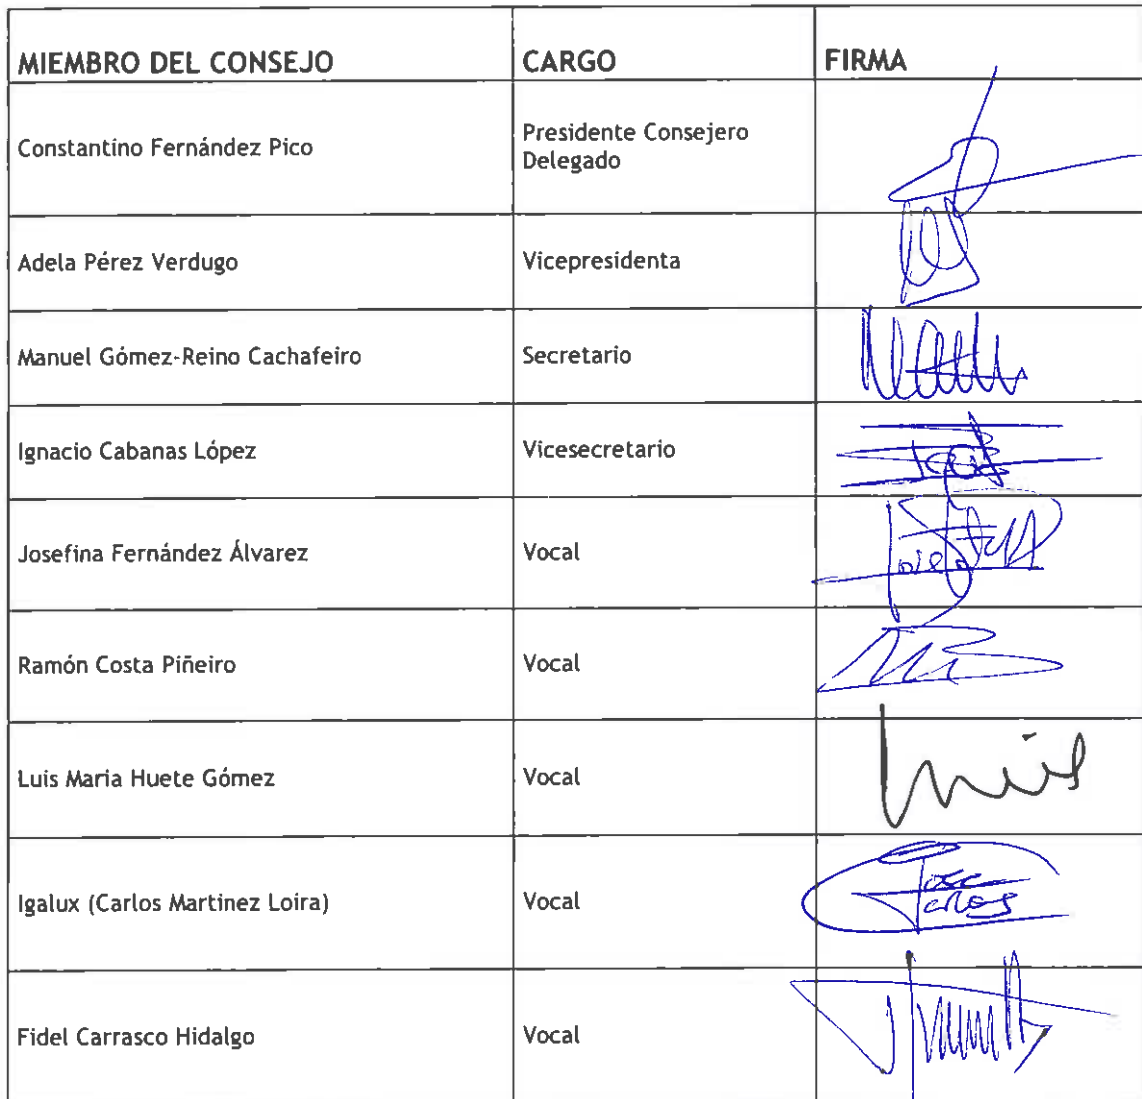 MIEMBRO DEL CONSEJO CARGO FIRMA
Constantino Fernández Pico Presidente Consejero
Delegado
Adela Pérez Verdugo Vicepresidenta
Manuel Gómez-Reino Cachafeiro Secretario
Ignacio Cabanas López Vicesecretario
Josefina Fernández Álvarez Vocal
Ramón Costa Piñeiro Vocal
Luis Maria Huete Gómez Vocal
Igalux (Carlos Martinez Loira) Vocal
Fidel Carrasco Hidalgo Vocal